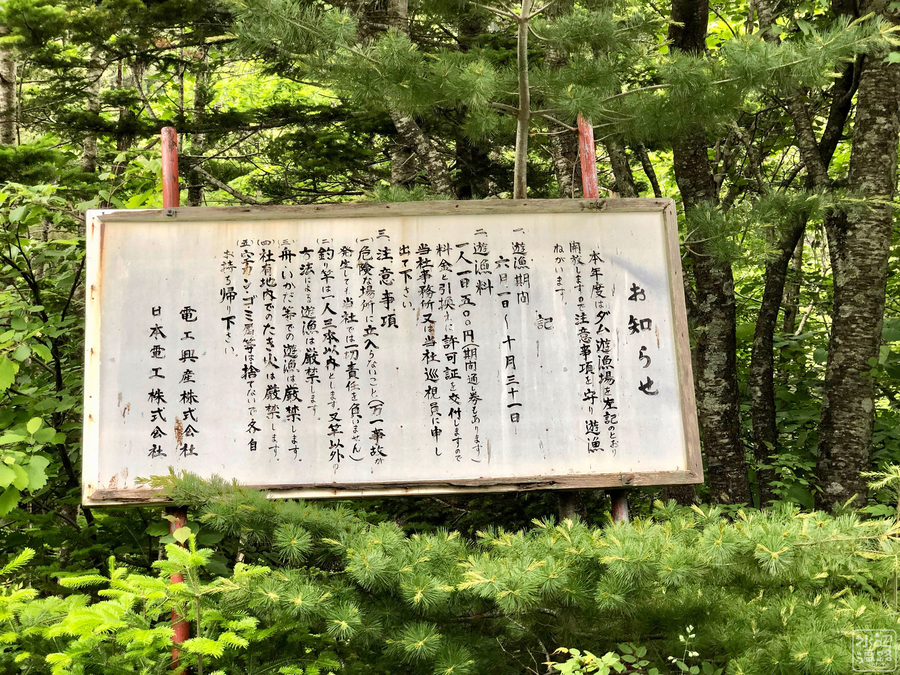 お知らせ
本年度はダム遊漁場を左記のとおり
開放しますので注意事項を守り遊漁
ねがいます。
記
一、遊漁期間
六月一日〜十月三十一日
二、遊漁料
一人一日五〇〇円(期間通し券もあります)
料金と引換えに許可証を交付しますので
当社事務所又は当社巡視員に申し
出て下さい。
三、注意事項
(一)危険な場所に立入らないこと(万一事故が
発生しても当社では一切責任を負いません)
(二)釣り竿は一人三本以内とします又竿以外の
方法による遊漁は厳禁します。
(三)舟・いかだ等での遊漁は厳禁します。
(四)社有地内でのたき火は厳禁します。
(五)空カン・ゴミ屑等は捨てないで各自
お持ち帰り下さい。
電工興産株式会社
日本電工株式会社